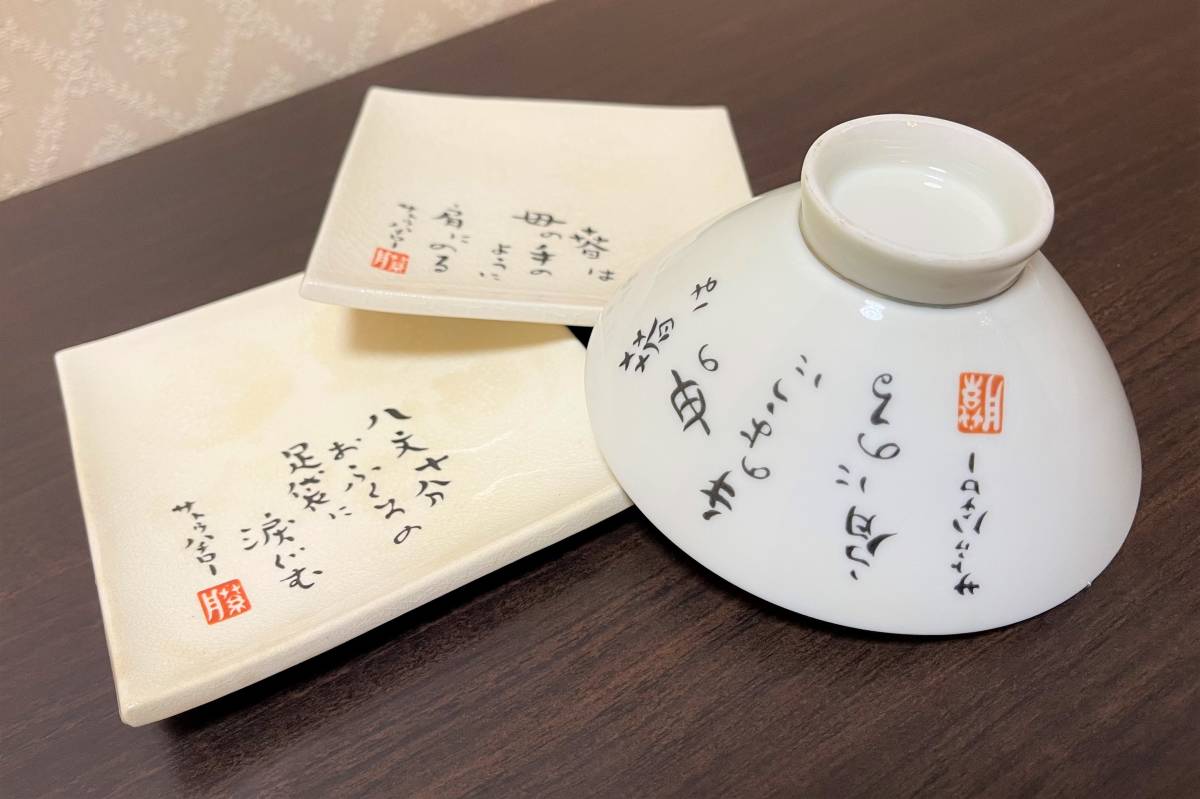 は
母の手の
ように
肩にのる
サトウハチロー
藤
八文十分
おふくろの
足袋に
涙ぐむ
サトウハチロー
藤
は
母の
手のように
肩にのる
サトウハチロー
藤